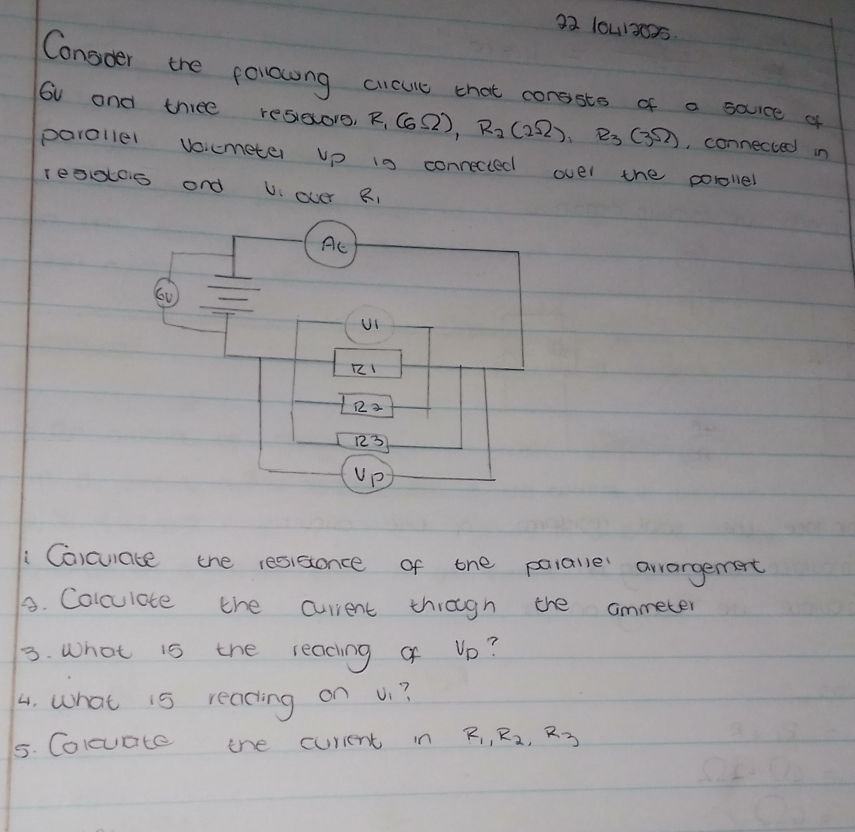 22/04/2025.
Consder the following circuit that consists of a source of
6V and three resistors, R1 (6Ω), R2 (2Ω), R3 (3Ω), connected in
parallel voltmeter Vp is connected over the parallel
resistors and V1 over R1
At
6V
V1
R1
R2
R3
Vp
1 Calculate the resistance of the parallel arrangement
2. Calculate the current through the ammeter
3. What is the reading of Vp?
4. What is reading on V1?
5. Calculate the current in R1, R2, R3